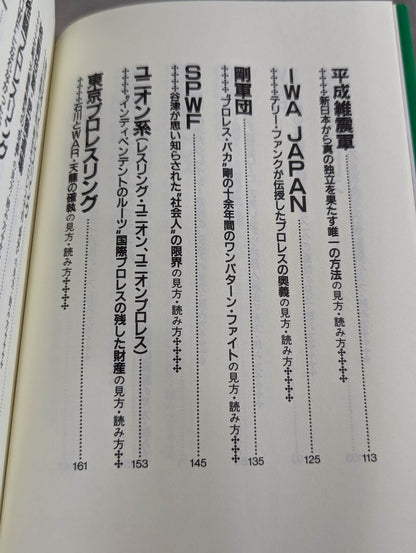 平成維震軍 113
✢✢✢✢新日本から真の独立を果たす唯一の方法の見方・読み方✢✢✢✢
IWA JAPAN 125
✢✢✢✢テリー・ファンクが伝授したプロレスの奥義の見方・読み方✢✢✢✢
剛軍団 135
✢✢✢✢"プロレス・バカ"剛の十余年間のワンパターン・ファイトの見方・読み方✢✢✢✢
SPWF 145
✢✢✢✢谷津が思い知らされた"社会人"の限界の見方・読み方✢✢✢✢
ユニオン系(レスリング・ユニオン、ユニオンプロレス) 153
✢✢✢✢"インディペンデントのルーツ"国際プロレスの残した財産の見方・読み方✢✢✢✢
東京プロレスリング 161
✢✢✢✢石川とWAR・天龍の確執の見方・読み方✢✢✢✢